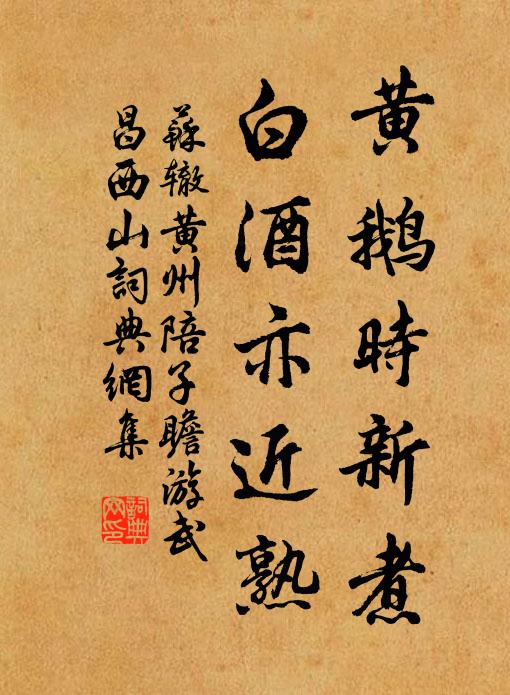 黄鹅時新煮
白酒亦近熟
蘇辙黄州陪子瞻游武
昌西山詞典網集
詞典
网印